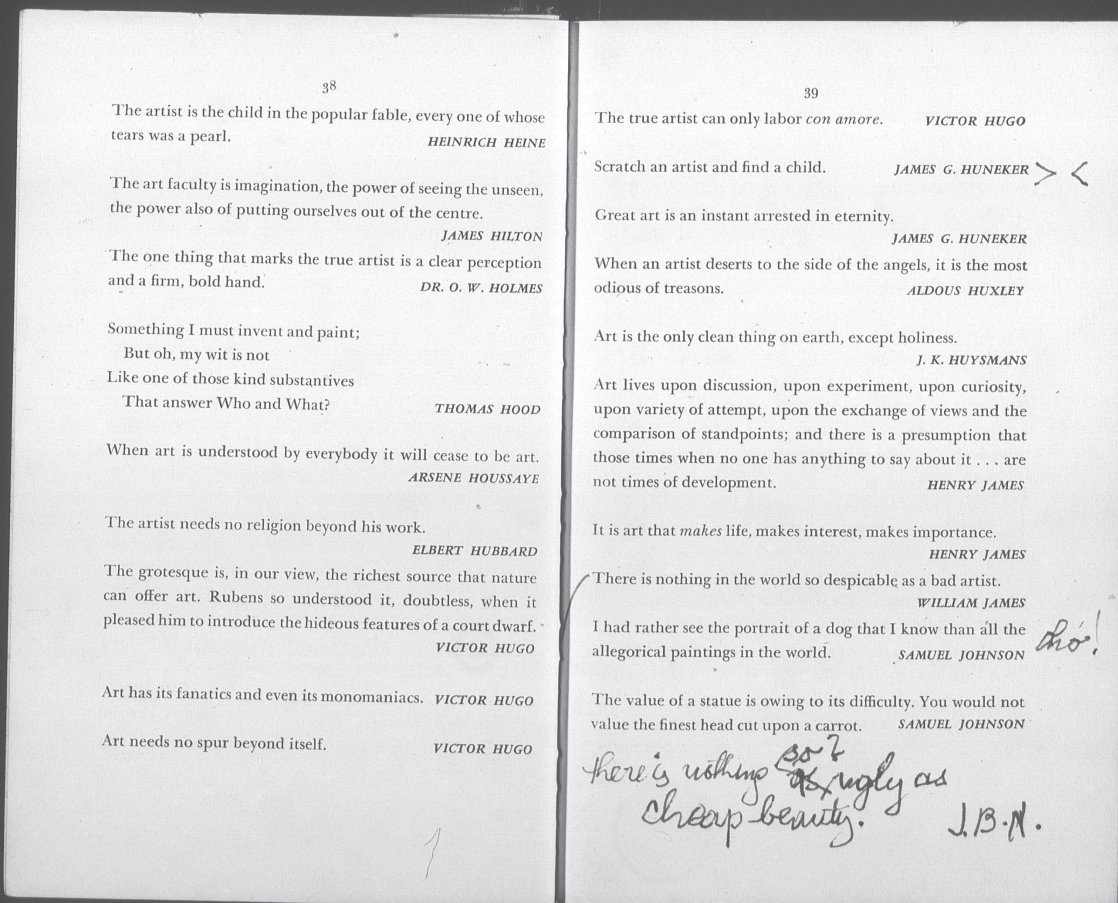 38
The artist is the child in the popular fable, every one of whose
tears was a pearl. HEINRICH HEINE
The art faculty is imagination, the power of seeing the unseen,
the power also of putting ourselves out of the centre.
JAMES HILTON
The one thing that marks the true artist is a clear perception
and a firm, bold hand. DR. O. W. HOLMES
Something I must invent and paint;
But oh, my wit is not
Like one of those kind substantives
That answer Who and What? THOMAS HOOD
When art is understood by everybody it will cease to be art.
ARSENE HOUSSAYE
The artist needs no religion beyond his work.
ELBERT HUBBARD
The grotesque is, in our view, the richest source that nature
can offer art. Rubens so understood it, doubtless, when it
pleased him to introduce the hideous features of a court dwarf.
VICTOR HUGO
Art has its fanatics and even its monomaniacs. VICTOR HUGO
Art needs no spur beyond itself. VICTOR HUGO
39
The true artist can only labor con amore. VICTOR HUGO
Scratch an artist and find a child. JAMES G. HUNEKER > <
Great art is an instant arrested in eternity.
JAMES G. HUNEKER
When an artist deserts to the side of the angels, it is the most
odious of treasons. ALDOUS HUXLEY
Art is the only clean thing on earth, except holiness.
J. K. HUYSMANS
Art lives upon discussion, upon experiment, upon curiosity,
upon variety of attempt, upon the exchange of views and the
comparison of standpoints; and there is a presumption that
those times when no one has anything to say about it . . . are
not times of development. HENRY JAMES
It is art that makes life, makes interest, makes importance.
HENRY JAMES
There is nothing in the world so despicable as a bad artist.
WILLIAM JAMES
I had rather see the portrait of a dog that I know than all the
allegorical paintings in the world. SAMUEL JOHNSON
The value of a statue is owing to its difficulty. You would not
value the finest head cut upon a carrot. SAMUEL JOHNSON
so?
there is nothing as ugly as
cheap beauty. J.B.N.